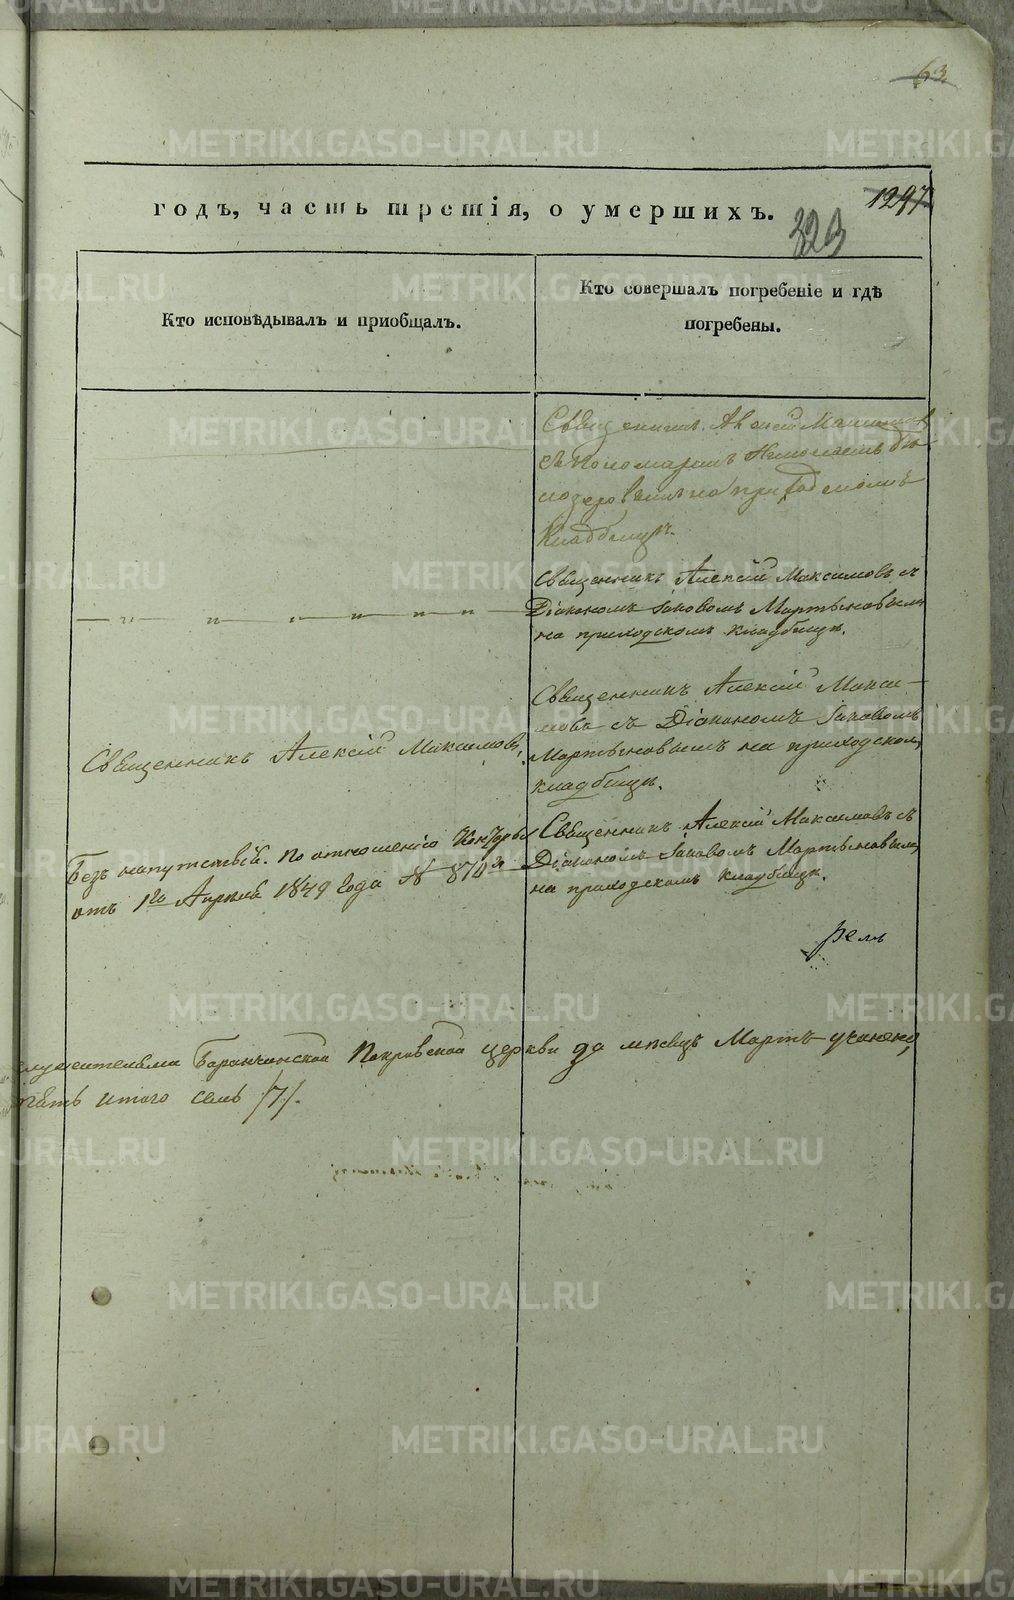 63
METRIKI.GASO-URAL.RU
1297
годъ, часть третія, о умершихъ.
323
Кто исповѣдывалъ и приобщалъ.
Кто совершалъ погребеніе и гдѣ
погребены.
Священникъ
съ пономаремъ
на приходскомъ
кладбищѣ.
Священникъ Алексій Максимовъ съ
Діакономъ Іаковомъ Мартыновымъ
на приходскомъ кладбищѣ.
Священникъ Алексій Максимовъ,
Священникъ Алексій Макси-
мовъ съ Діакономъ Іаковомъ
Мартыновымъ на приходскомъ
кладбищѣ.
Безъ напутствій. По отношенію Конторы
отъ 1го Апрѣля 1849 года № 870й
Священникъ Алексій Максимовъ съ
Діакономъ Іаковомъ Мартыновымъ
на приходскомъ кладбищѣ.
рель
служительми Баранчинской Покровской церкви за мѣсяцъ Мартъ учинено,
пять итого семь /7/.